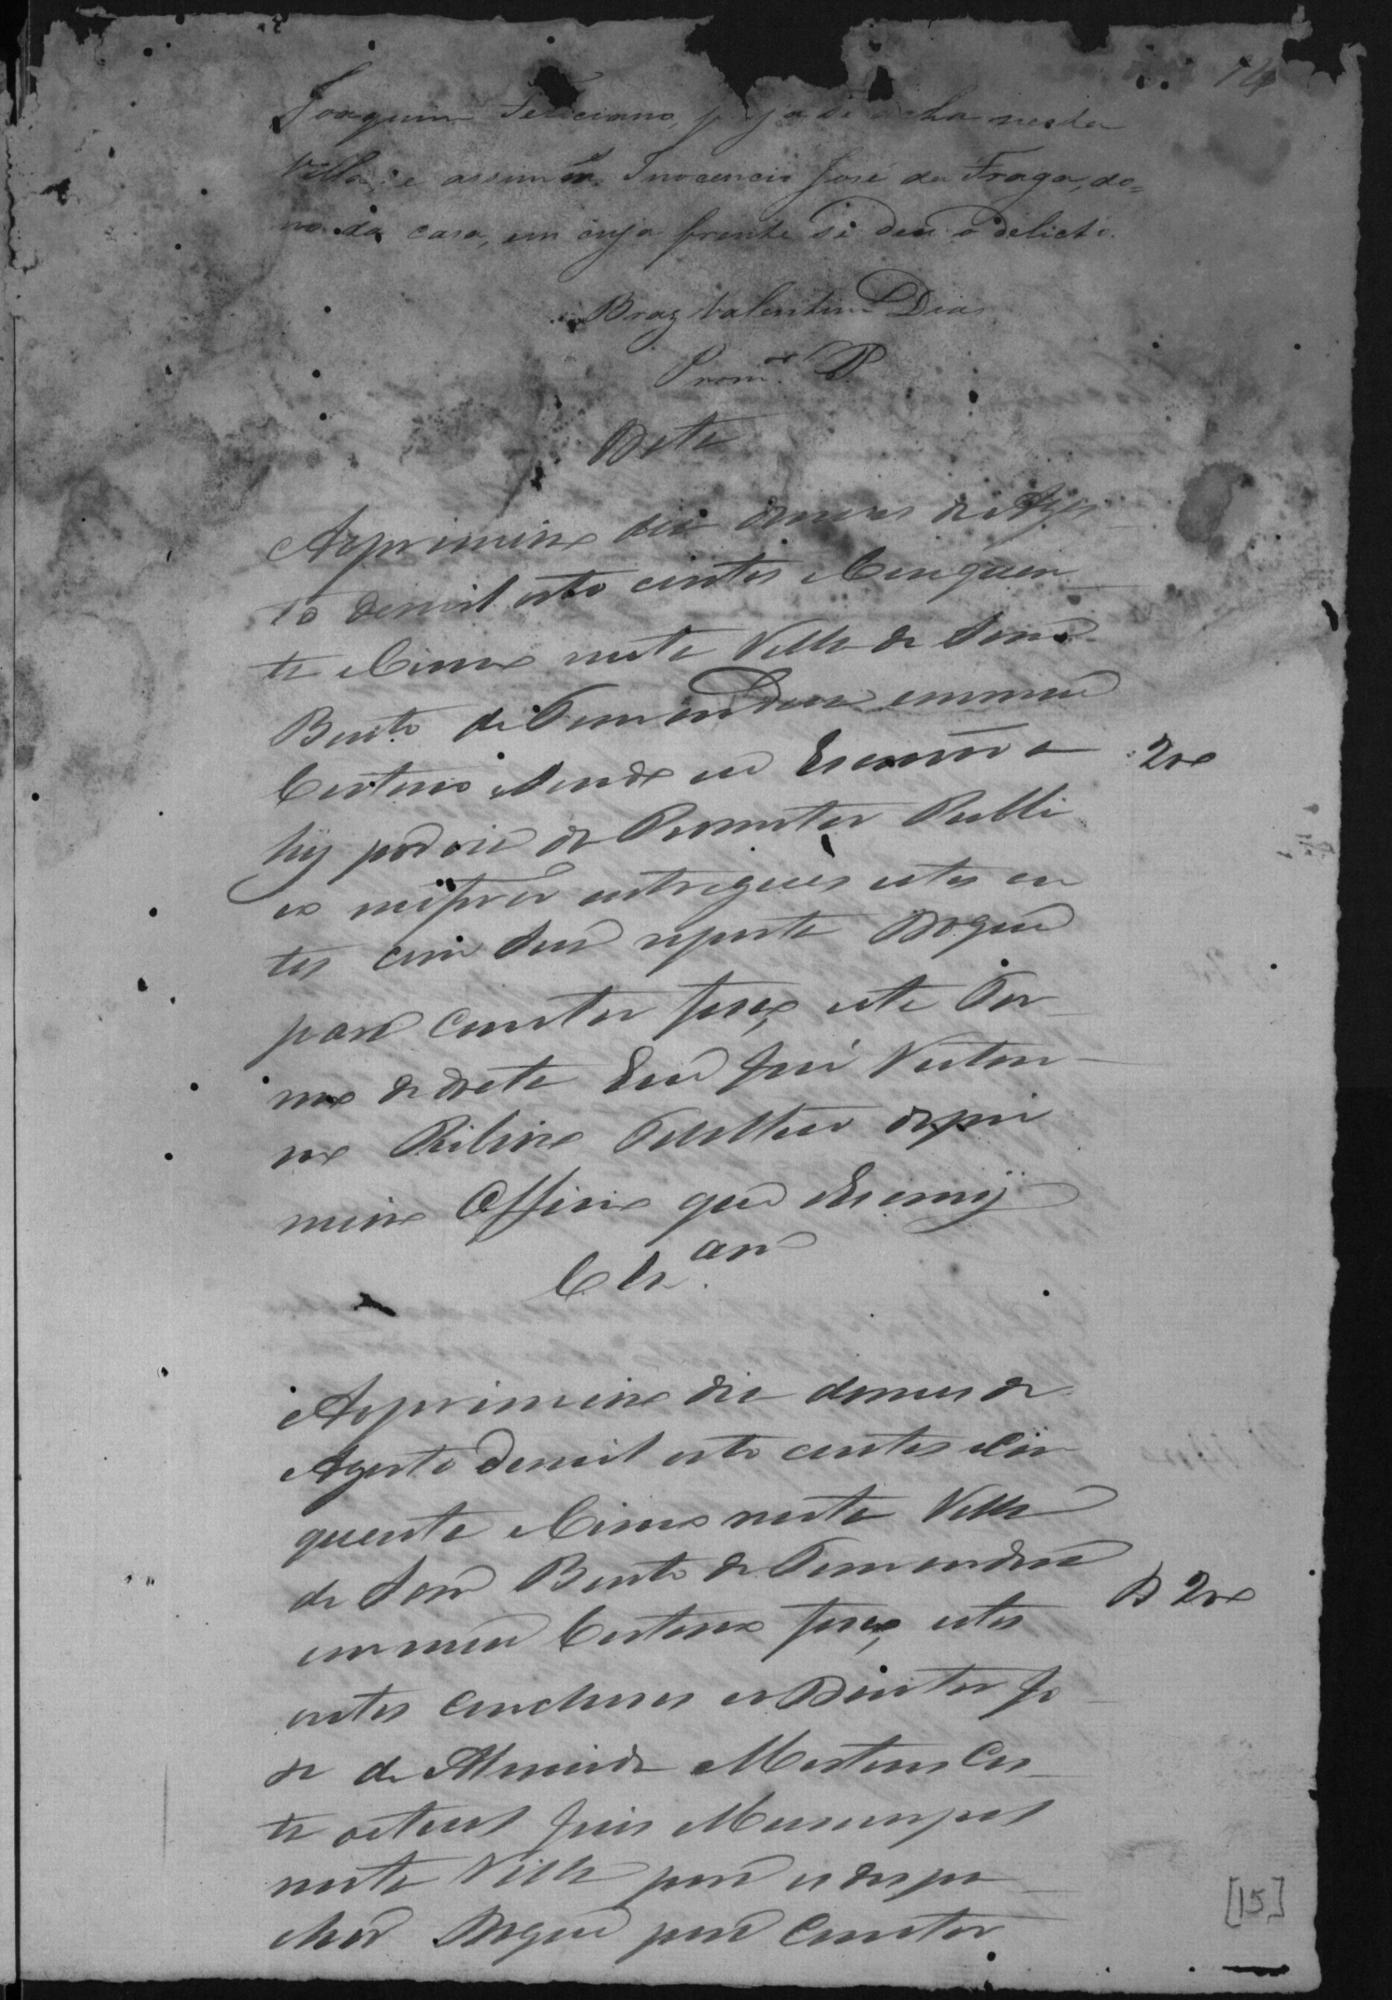 14
Joaquim Feliciano, ja se acha nesta
Villa; e assim Inocencio José da Fraga, do=
no da casa, em cuja frente se deu o delicto.
Braz Valentim Dias
Prom.or P.
Data
Aoprimeiro dia domes de Agos
to demil oito centos e Cinquen
ta e Cinco nesta Villa de Sam
Bento de Tamandua emmeu
Cartorio donde eu Escrivão a
hy por do Promotor Publi
co me forão entregues estes au
tos com sua reposta Doque
para constar fasso este Ter
mo de data Eu José Victori
no Ribeiro do pri
meiro Officio que Escrevy
Clz.am
Aoprimeiro dia domes de
Agosto demil oito centos e Cin
quenta e Cinco nesta Villa
de Sam Bento de Tamandua
emmeu Cartorio fasso estes
autos conclusos ao Doutor Jo
se de Almeida Martins Cos
ta actual Juis Municipal
nesta Villa para os despa
char Doque para Constar
[15]